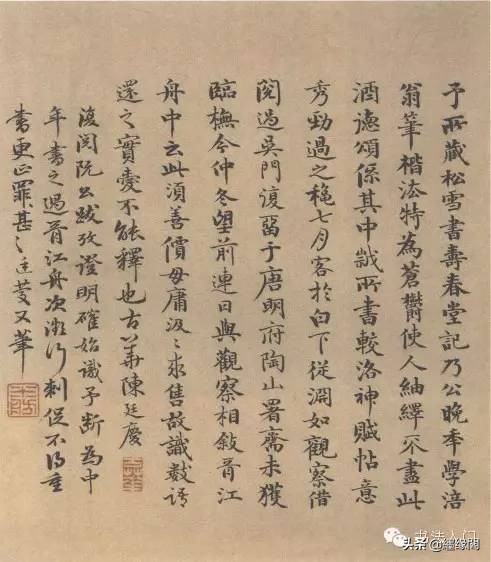 予所藏松雪書壽春堂記乃公晚年學涪
翁筆楷法特為蒼鬱使人紬繹不盡此
酒德頌係其中歲所書較洛神賦帖意
秀勁過之穐七月客於白下從澗如觀察借
閱過吳門復晤于唐明府陶山署齋未獲
臨橅今仲冬望前連日與觀察相敘胥江
舟中云此須善價毋庸汲〻求售故識數語
還之實愛不能釋也古華陳廷慶
復閱阮公跋攷證明確始識予斷為中
年書之過胥江舟次行刺促不得重
書更正罪甚〻廷慶又筆
书法入门
头条